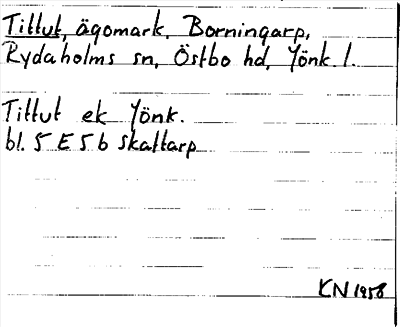 Tittut, ägomark. Borningarp,
Rydaholms sn, Östbo hd, Jönk. l.
Tittut ek Jönk.
bl. 5 E 5 b Skaltarp
KN 1958